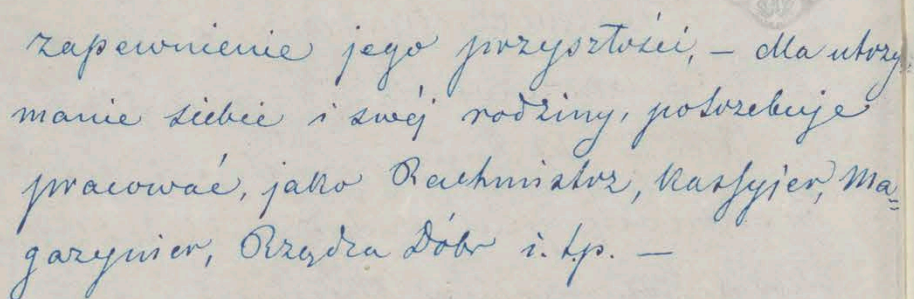 zapewnienie jego przyszłości, – Ma utrzy
manie siebie i swéj rodziny, potrzebuje
pracować, jako Rachmistrz, kassyjer, Ma=
gazynier, Rządca Dóbr i. t.p. —